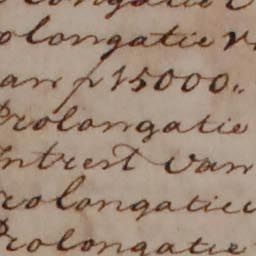 olongatie
olongatie v
an ƒ 15000.
Prolongatie
Intrest van
rolongatie
Prolongatie